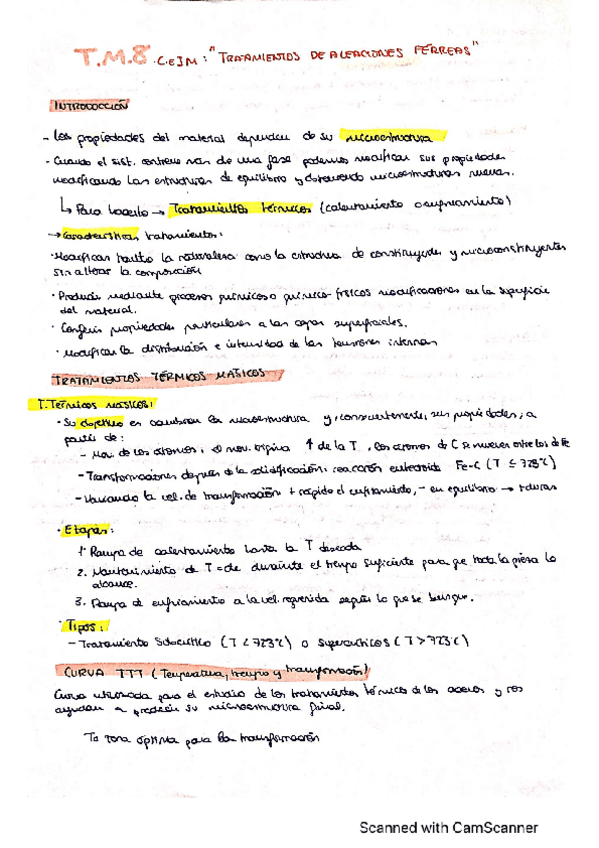 T.M.8 C.e I.M: "TRATAMIENTOS DE ALEACIONES FÉRREAS"
INTRODUCCIÓN
- Las propiedades del material dependen de su microestructura
- Cuando el sist. contiene más de una fase podemos modificar sus propiedades
modificando las estructuras de equilibrio y obteniendo microestructuras nuevas.
↳ Para hacerlo → Tratamientos térmicos (calentamiento o enfriamiento)
→ Características tratamientos:
· Modificar tanto la naturaleza como la estructura de constituyentes y microconstituyentes
sin alterar la composición
· Producir mediante procesos químicos o químico-físicos modificaciones en la superficie
del material.
· Conferir propiedades particulares a las capas superficiales.
· Modificar la distribución e intensidad de las tensiones internas
TRATAMIENTOS TÉRMICOS MÁSICOS
T. Térmicos másicos:
· Su objetivo es cambiar la microestructura y, consecuentemente, sus propiedades, a
partir de:
- Mov. de los átomos: el mov. ↑ de la T, los átomos de C se mueven entre los de Fe
- Transformaciones después de la solidificación: reacción eutectoide Fe-C (T ≤ 723ºC)
- Variando la vel. de transformación + rápido el enfriamiento, - en equilibrio → + duras
· Etapas:
1. Rampa de calentamiento hasta la T deseada
2. Mantenimiento de T = cte durante el tiempo suficiente para que toda la pieza lo
alcance.
3. Rampa de enfriamiento a la vel. requerida según lo que se busque.
· Tipos:
- Tratamiento Subcrítico (T < 723ºC) o Supercríticos (T > 723ºC)
CURVA TTT (Temperatura, tiempo y transformación)
Curva utilizada para el estudio de los tratamientos térmicos de los aceros y nos
ayudan a predecir su microestructura final.
Tª zona óptima para la transformación
Scanned with CamScanner